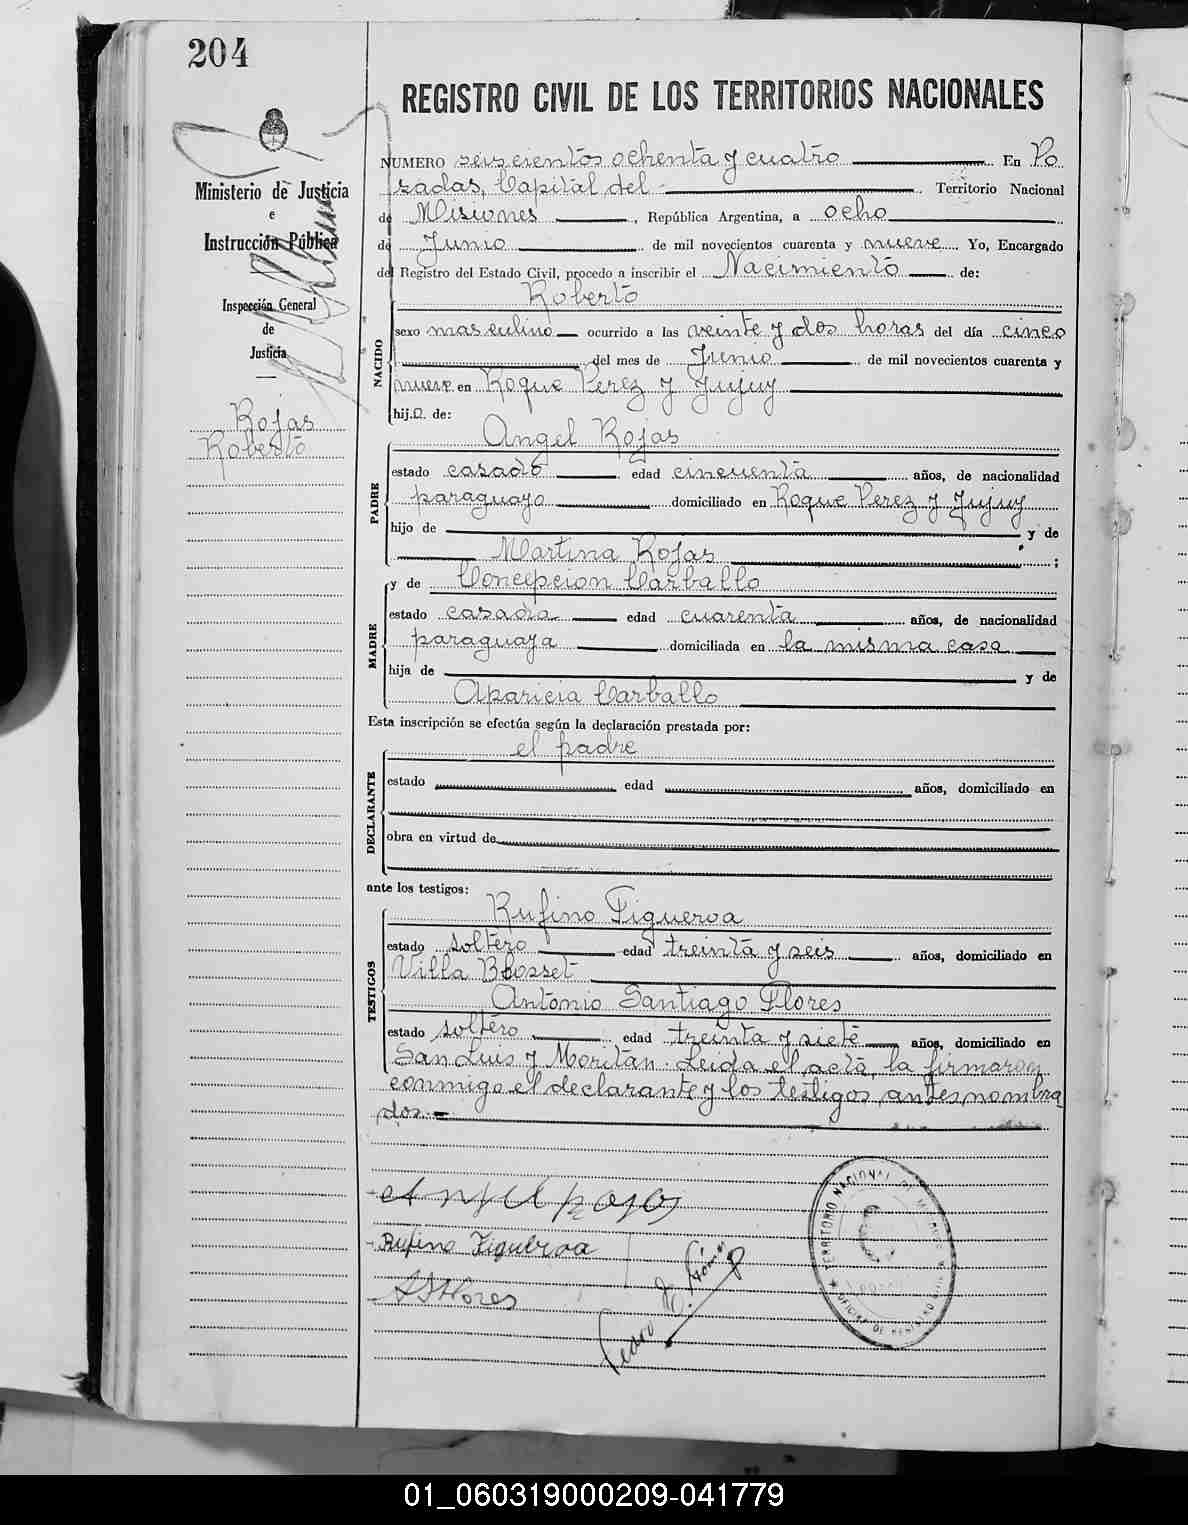 204
REGISTRO CIVIL DE LOS TERRITORIOS NACIONALES
Ministerio de Justicia
e
Instrucción Pública
Inspección General
de
Justicia
Rojas
Roberto
NUMERO seiscientos ochenta y cuatro En Po
sadas, Capital del Territorio Nacional
de Misiones, República Argentina, a ocho
de Junio de mil novecientos cuarenta y nueve Yo, Encargado
del Registro del Estado Civil, procedo a inscribir el Nacimiento de:
NACIDO
Roberto
sexo masculino ocurrido a las veinte y dos horas del día cinco
del mes de Junio de mil novecientos cuarenta y
nueve en Roque Perez y Jujuy
hijo de:
PADRE
Angel Rojas
estado casado edad cincuenta años, de nacionalidad
paraguayo domiciliado en Roque Perez y Jujuy
hijo de y de
Martina Rojas ;
MADRE
y de Concepcion Carballo
estado casada edad cuarenta años, de nacionalidad
paraguaya domiciliada en la misma casa
hija de y de
Aparicia Carballo
Esta inscripción se efectúa según la declaración prestada por:
DECLARANTE
el padre
estado edad años, domiciliado en
obra en virtud de
ante los testigos:
TESTIGOS
Rufino Figueroa
estado soltero edad treinta y seis años, domiciliado en
Villa Blosset
Antonio Santiago Flores
estado soltero edad treinta y siete años, domiciliado en
San Luis y Moritan. Leida el acta, la firmaron
conmigo el declarante y los testigos antes nombra
dos.-
Angel Rojas
Rufino Figueroa
A S Flores
Pedro
TERRITORIO NACIONAL DE MISIONES
OFICINA DE REGISTRO CIVIL
01_060319000209-041779